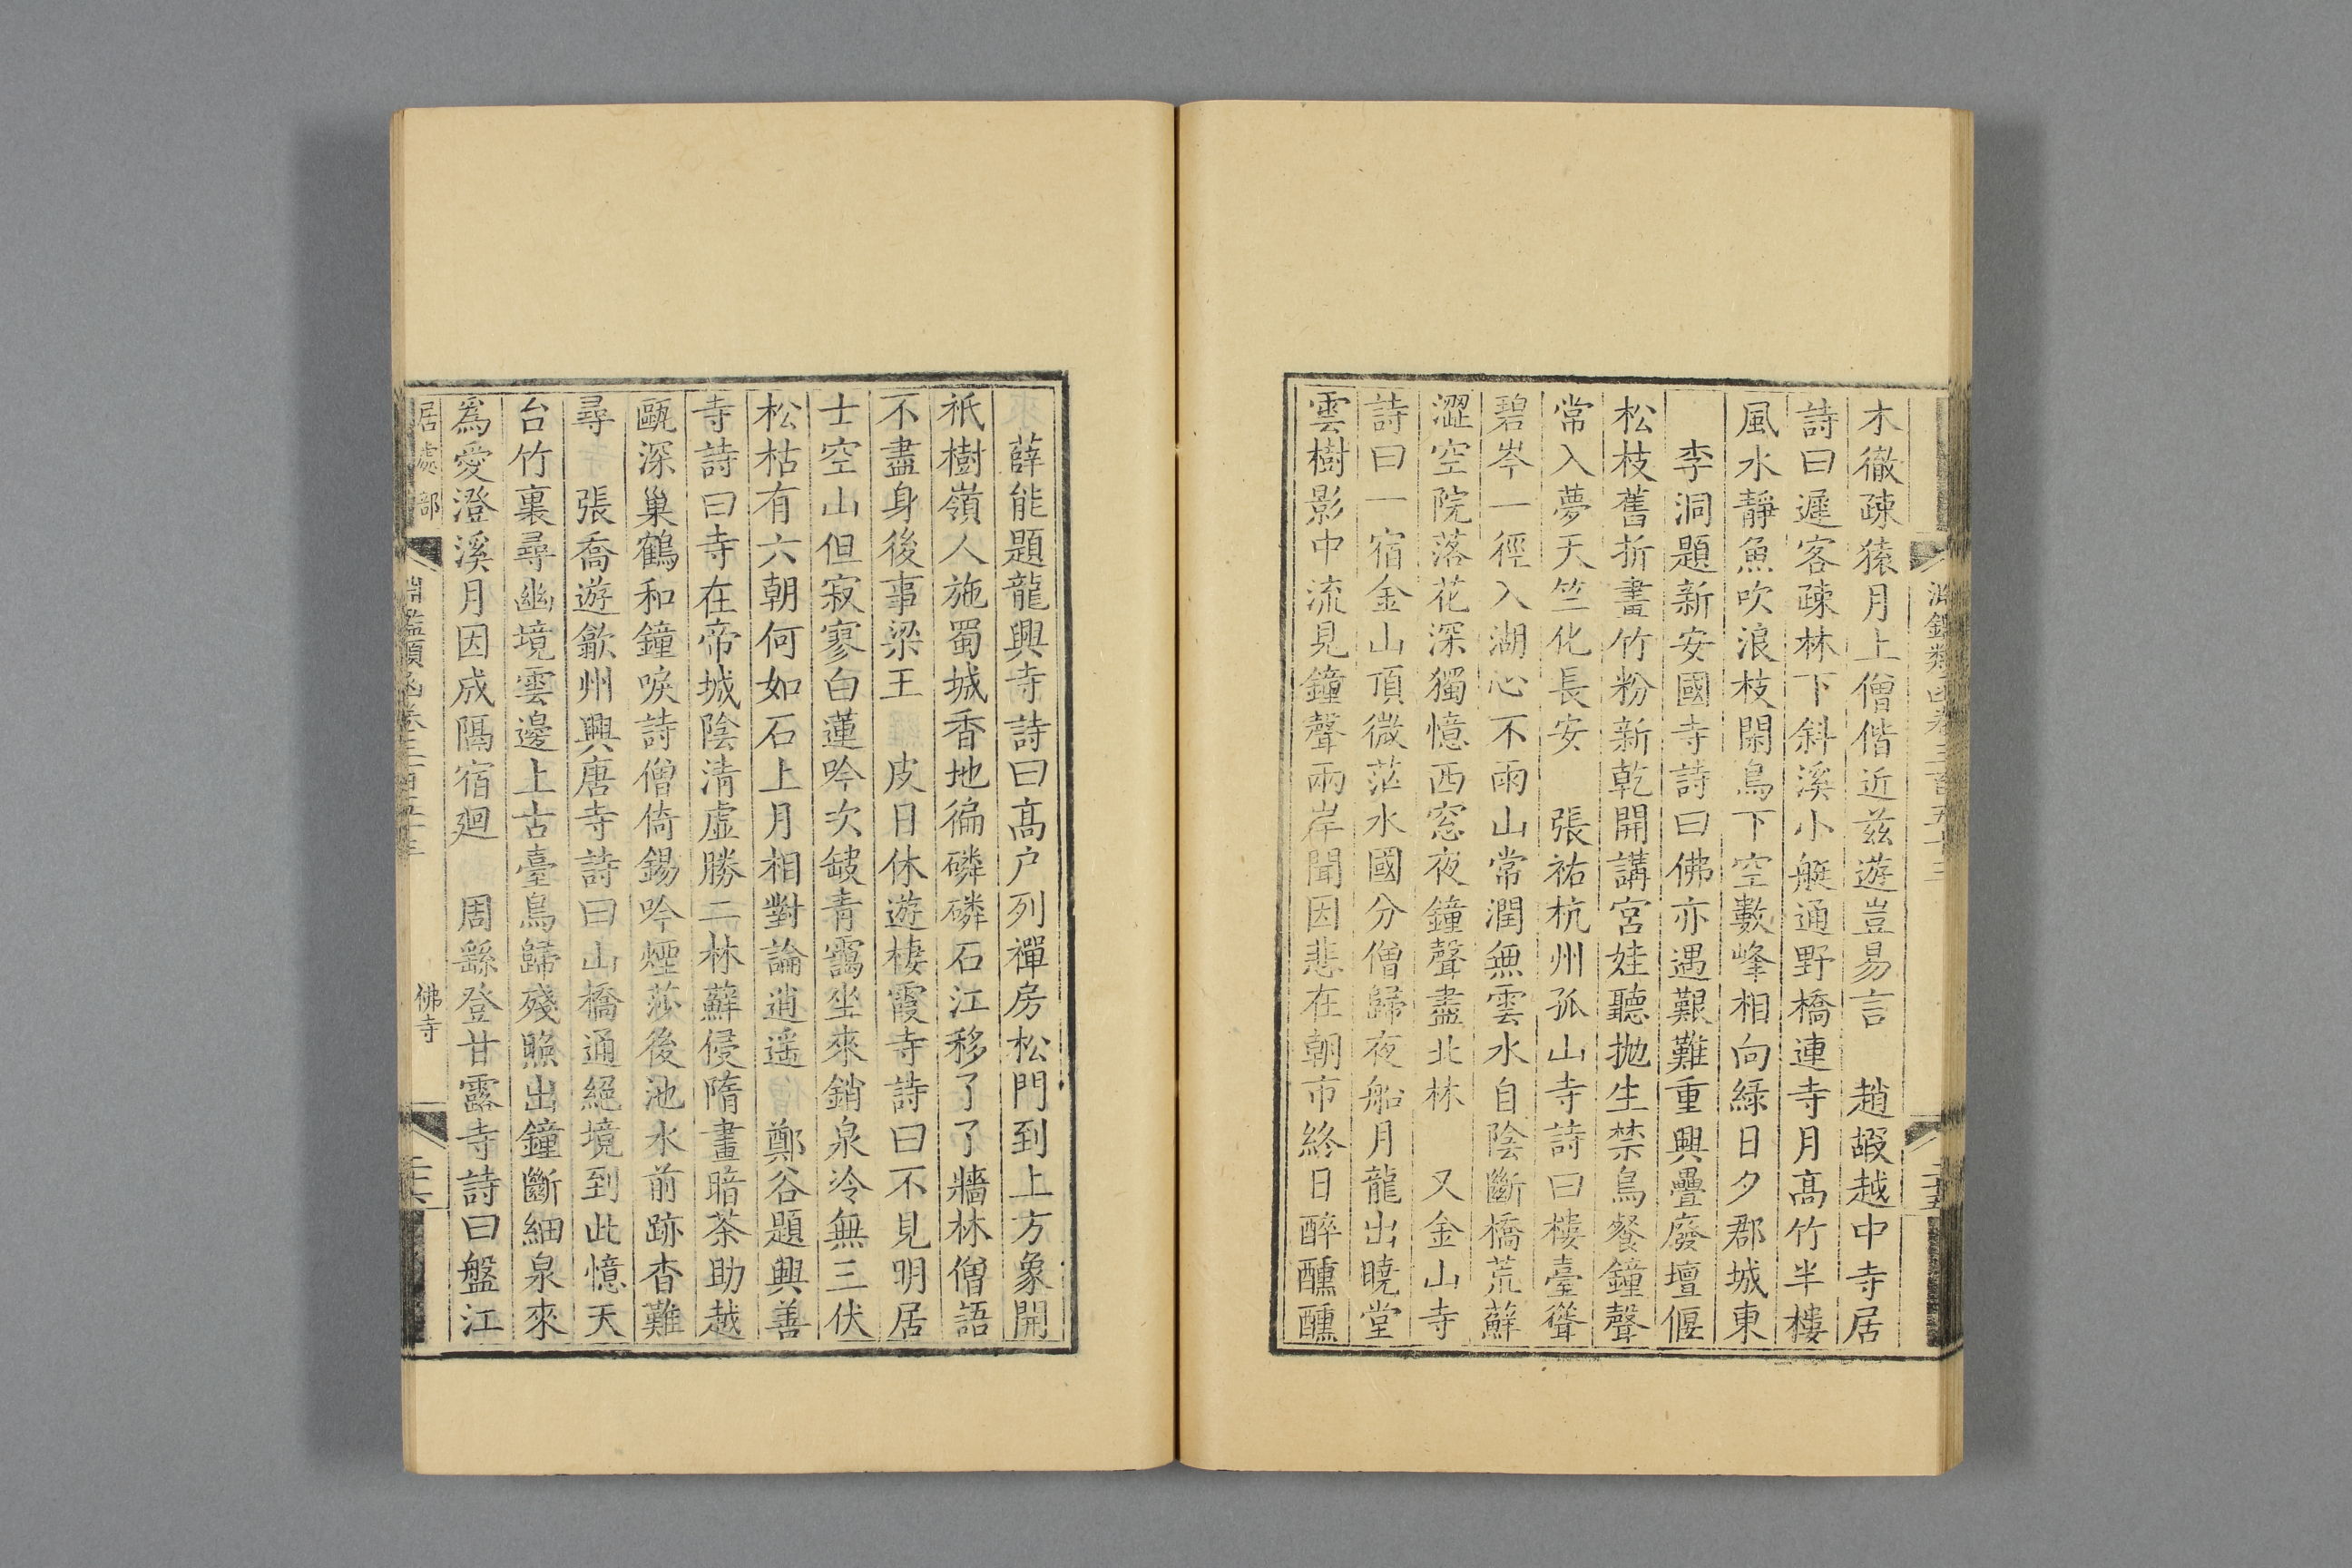 木徹疎猿月上僧偕近兹遊豈易言　趙嘏越中寺居
詩曰遲客疎林下斜溪小艇通野橋連寺月髙竹半樓
風水靜魚吹浪枝閑鳥下空數峰相向綠日夕郡城東
李洞題新安國寺詩曰佛亦遇艱難重興疊廢壇偃
松枝舊折畵竹粉新乾開講宮娃聽抛生禁鳥餐鐘聲
常入夢天竺化長安　張祐杭州孤山寺詩曰樓臺聳
碧岑一徑入湖心不雨山常潤無雲水自陰斷橋荒蘚
澀空院落花深獨憶西窓夜鐘聲盡北林　又金山寺
詩曰一宿金山頂微茫水國分僧歸夜船月龍出曉堂
雲樹影中流見鐘聲兩岸聞因悲在朝市終日醉醺醺
薛能題龍興寺詩曰髙户列禪房松門到上方象開
祇樹嶺人施蜀城香地徧磷磷石江移了了牆林僧語
不盡身後事梁王　皮日休遊棲霞寺詩曰不見明居
士空山但寂寥白蓮吟次缺青靄坐來銷泉冷無三伏
松枯有六朝何如石上月相對論逍遥　鄭谷題興善
寺詩曰寺在帝城陰清虛勝二林蘚侵隋畫暗茶助越
甌深巢鶴和鐘唳詩僧倚錫吟煙莎後池水前跡杳難
尋　張喬遊歙州興唐寺詩曰山橋通絕境到此憶天
台竹裏尋幽境雲邊上古臺鳥歸殘照出鐘斷細泉來
爲愛澄溪月因成隔宿廻　周繇登甘露寺詩曰盤江
居處部
淵鑑類函卷三百五十三
佛寺
二十六